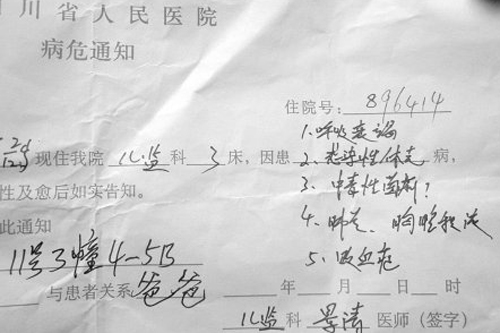 川省人民医院
病危通知
住院号：896414
1、呼吸衰竭
现住我院 儿监 科 3 床，因患 2、感染性休克 病，
性及愈后如实告知。
3、中毒性菌痢？
此通知
4、肺炎、胸腔积液
11号3幢4-5B
5、败血症
与患者关系 爸爸
年 月 日 时
儿监 科 医师（签字）